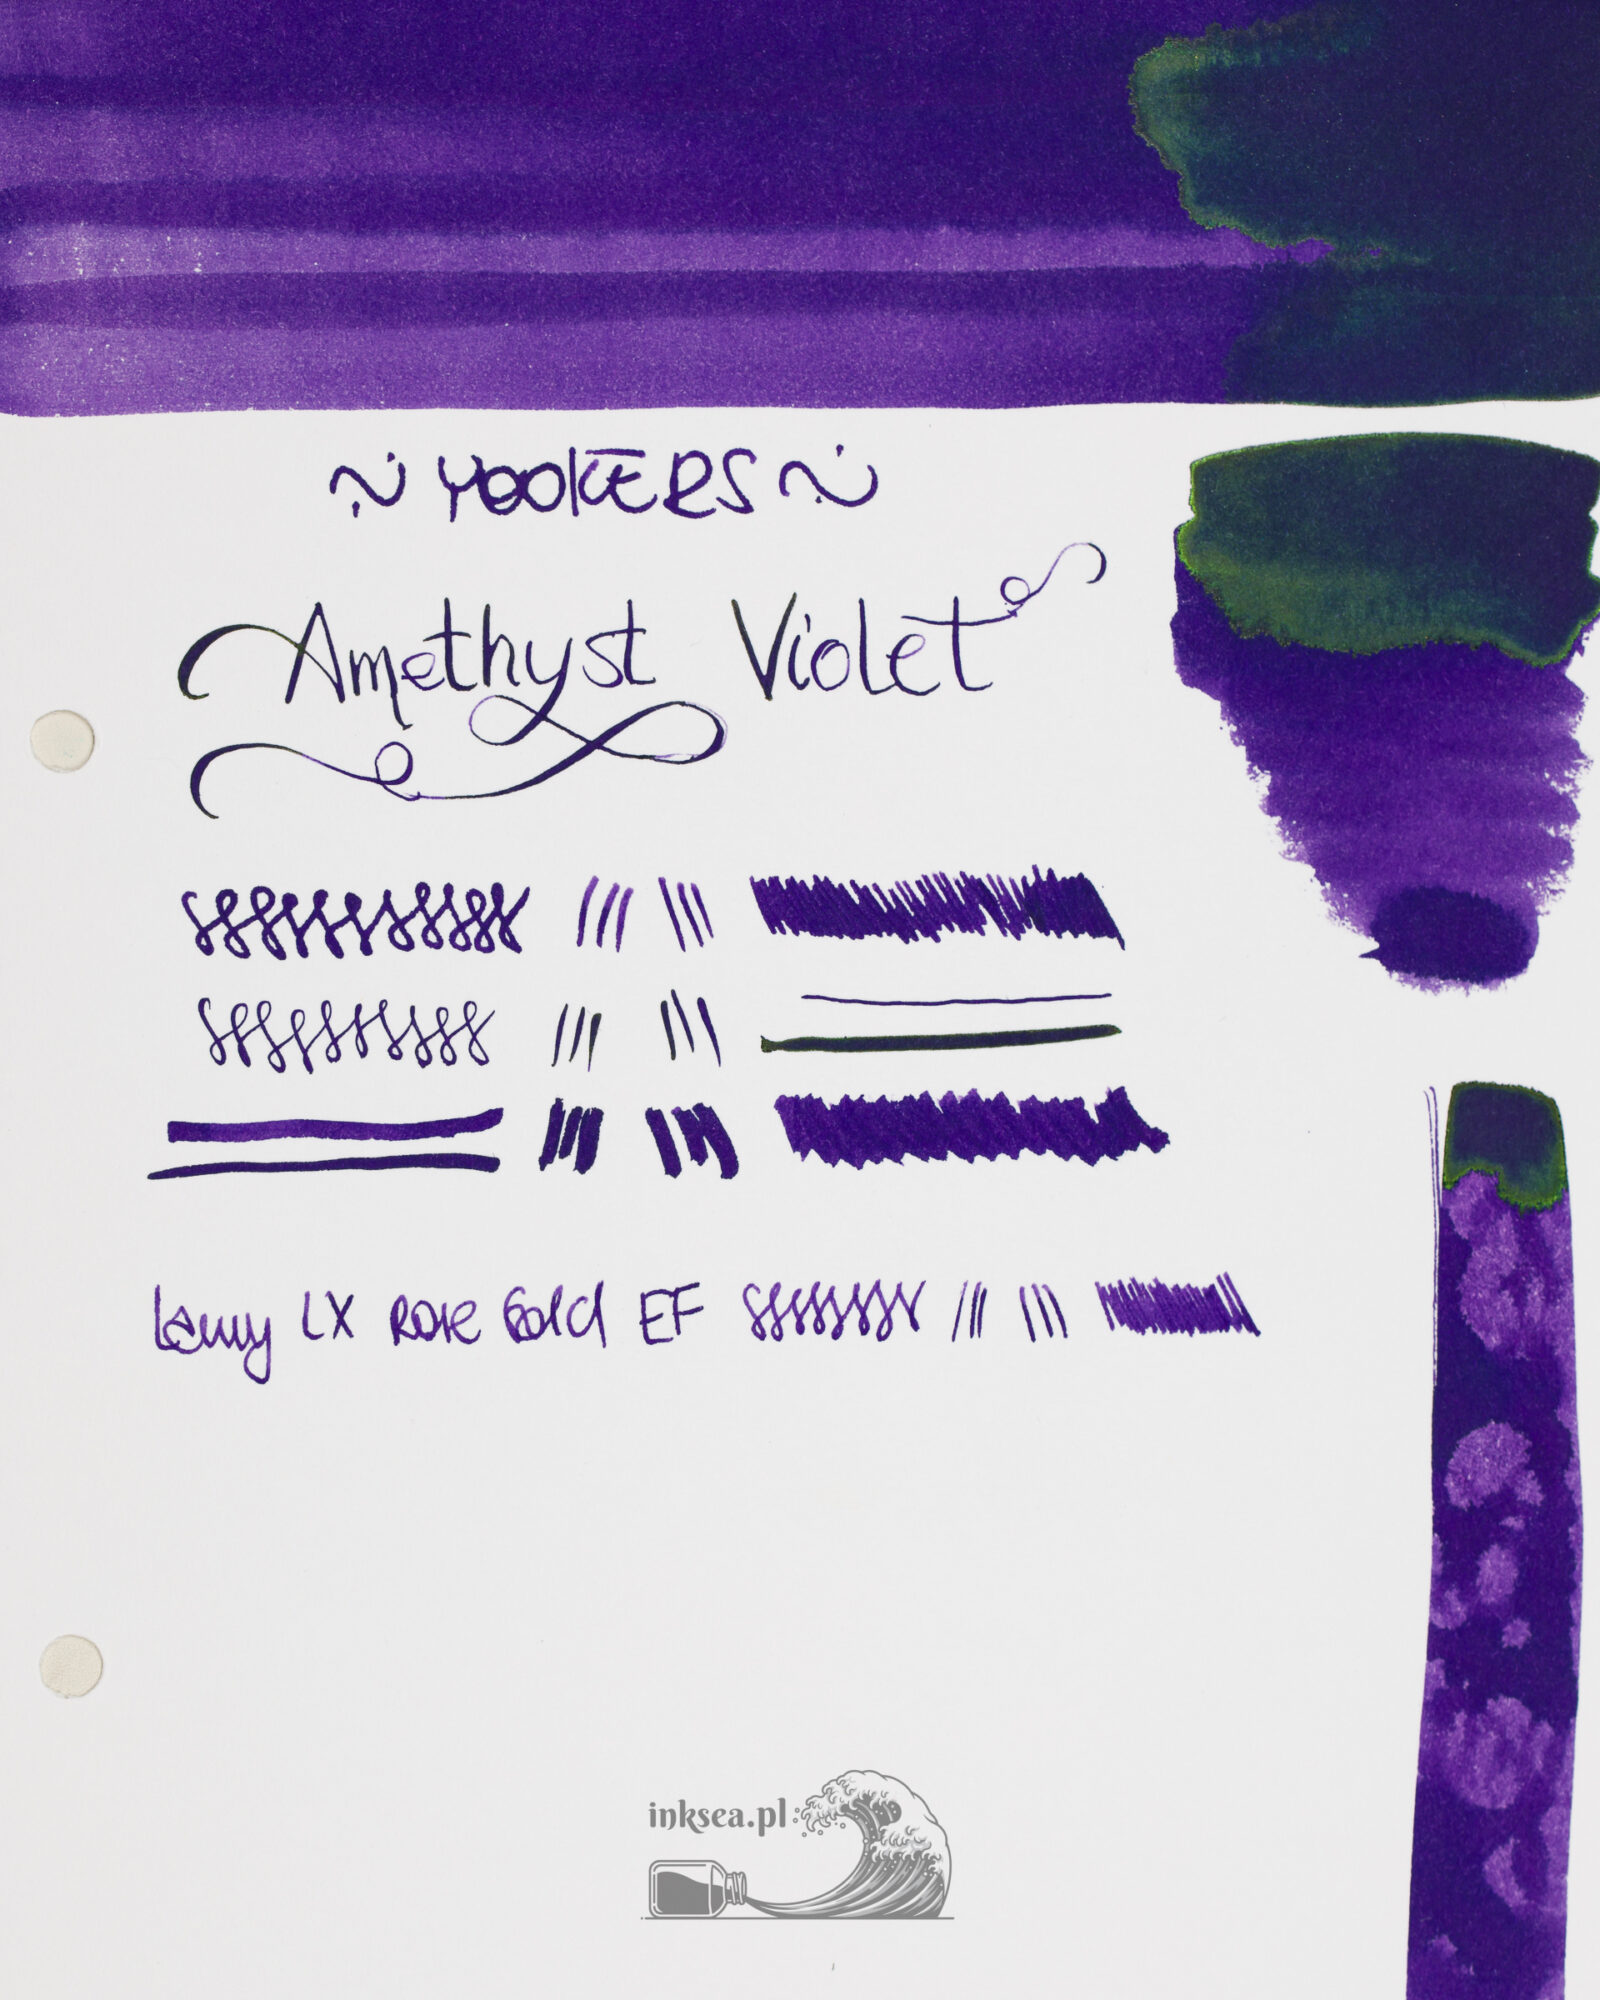 ~ YOOKERS ~
Amethyst Violet
Lamy LX Rose Gold EF
inksea.pl